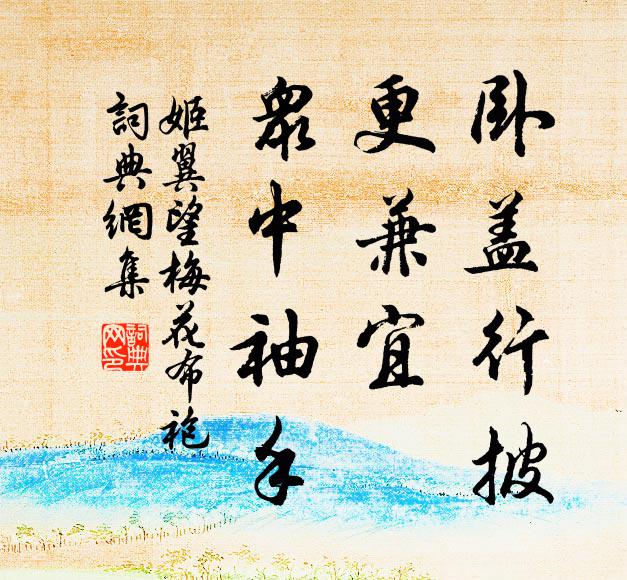 卧盖行披
更兼宜
眾中袖手
姬翼望梅花布袍
詞典網集
詞典网印